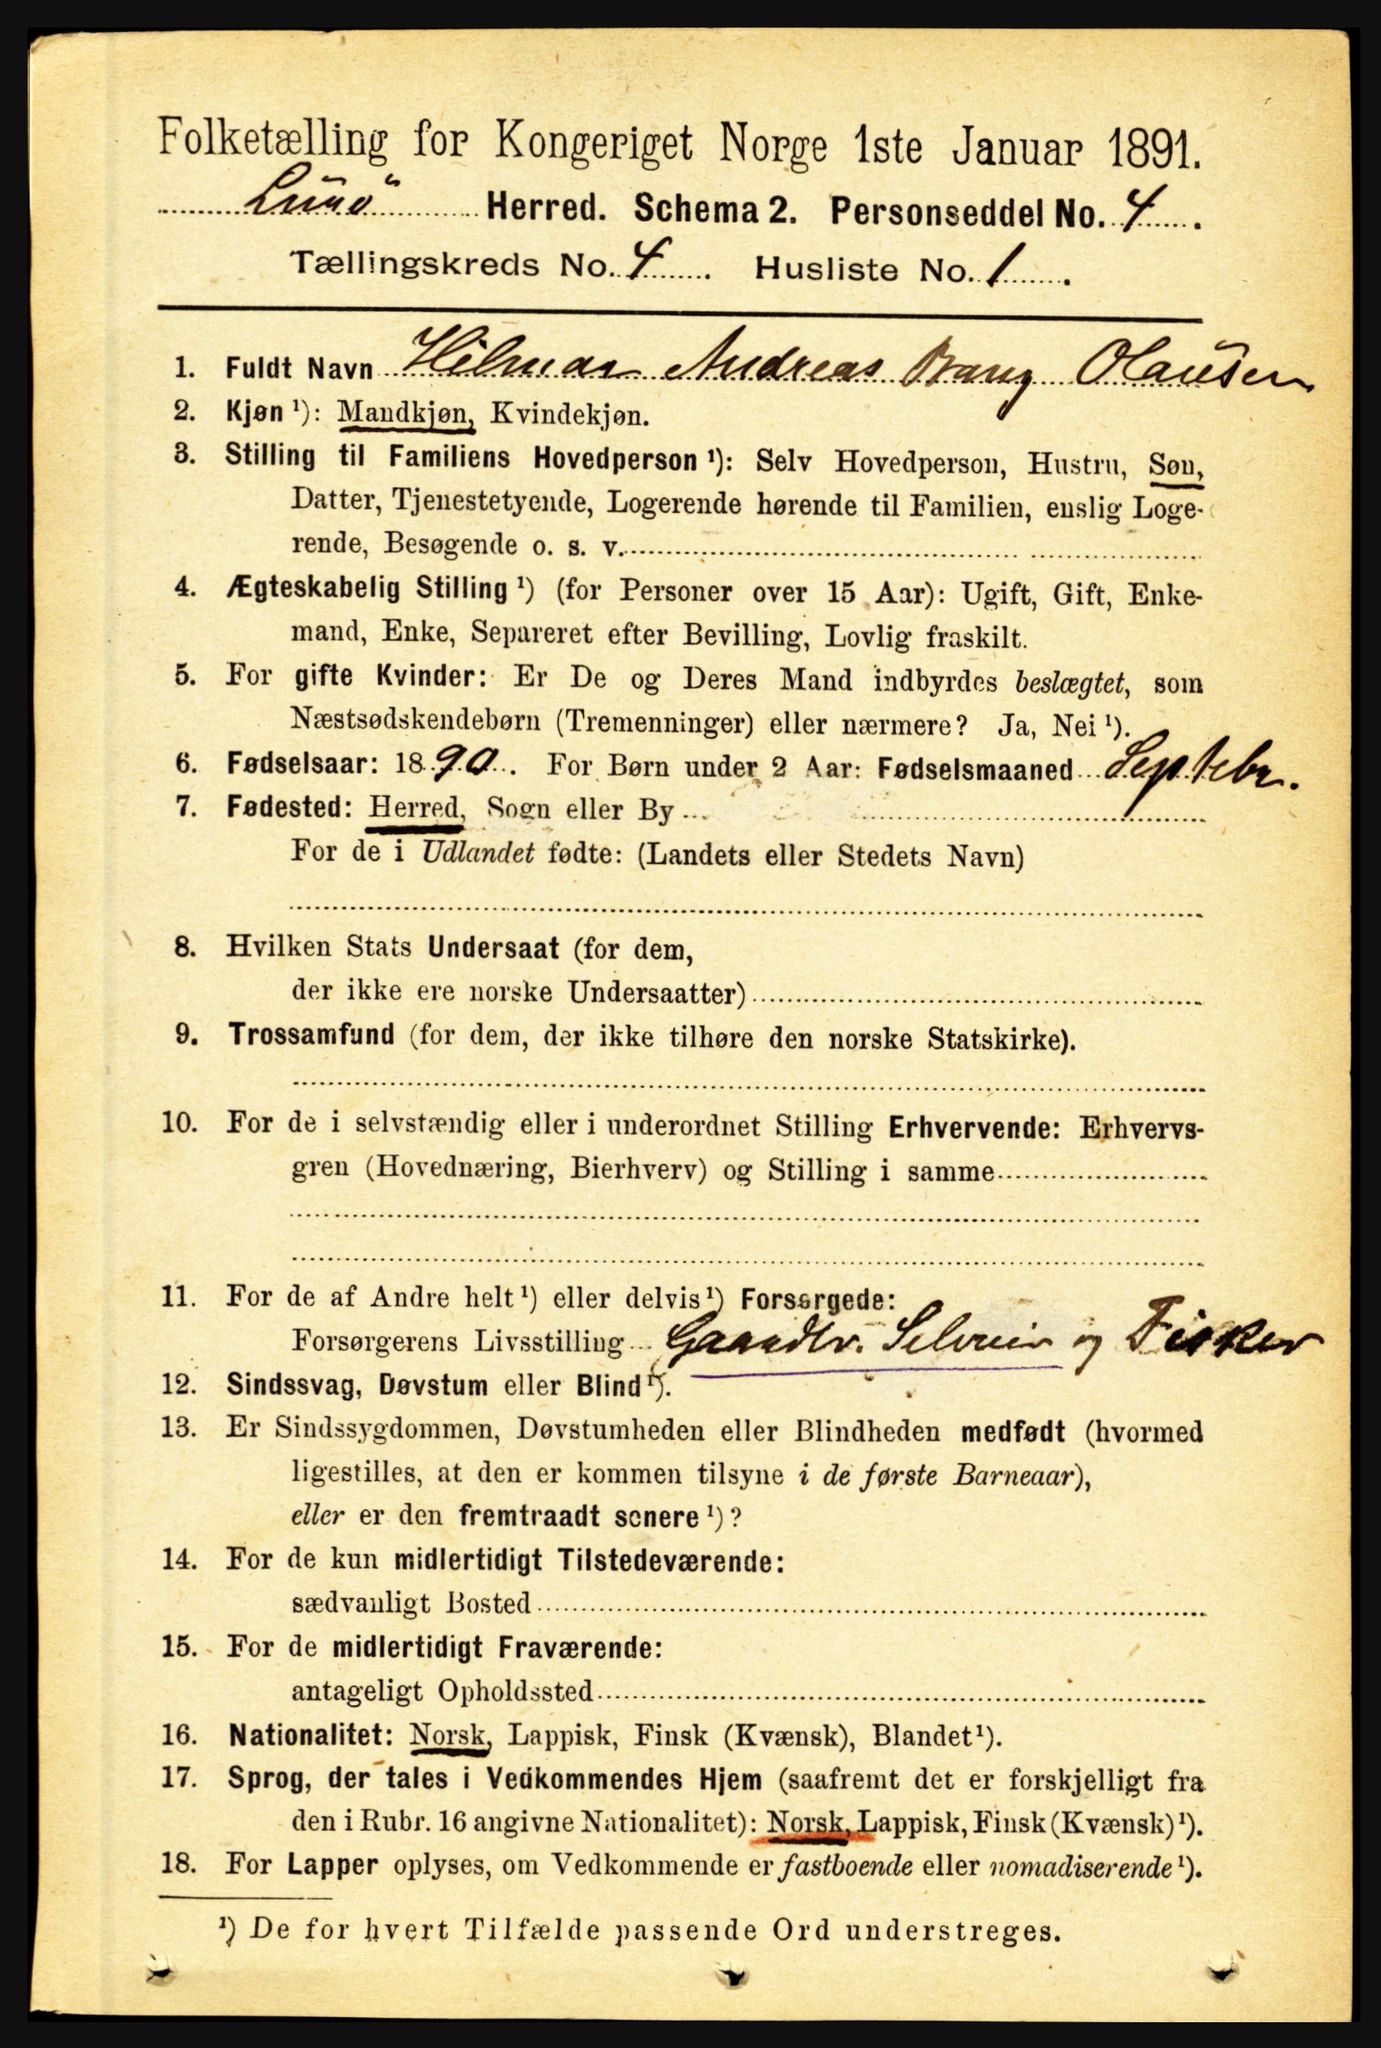 Folketælling for Kongeriget Norge 1ste Januar 1891.
Herred. Schema 2. Personseddel No. 4.
Tællingskreds No. 4. Husliste No. 1.
1. Fuldt Navn Hilmar Andreas Bang Olausen
2. Kjøn ¹): Mandkjøn, Kvindekjøn.
3. Stilling til Familiens Hovedperson ¹): Selv Hovedperson, Hustru, Søn,
Datter, Tjenestetyende, Logerende hørende til Familien, enslig Loge-
rende, Besøgende o. s. v.
4. Ægteskabelig Stilling ¹) (for Personer over 15 Aar): Ugift, Gift, Enke-
mand, Enke, Separeret efter Bevilling, Lovlig fraskilt.
5. For gifte Kvinder: Er De og Deres Mand indbyrdes beslægtet, som
Næstsødskendebørn (Tremenninger) eller nærmere? Ja, Nei ¹).
6. Fødselsaar: 1890. For Børn under 2 Aar: Fødselsmaaned Septebr.
7. Fødested: Herred, Sogn eller By
For de i Udlandet fødte: (Landets eller Stedets Navn)
8. Hvilken Stats Undersaat (for dem,
der ikke ere norske Undersaatter)
9. Trossamfund (for dem, der ikke tilhøre den norske Statskirke).
10. For de i selvstændig eller i underordnet Stilling Erhvervende: Erhvervs-
gren (Hovednæring, Bierhverv) og Stilling i samme
11. For de af Andre helt ¹) eller delvis ¹) Forsørgede:
Forsørgerens Livsstilling Gaardbr. Selveier og Fisker
12. Sindssvag, Døvstum eller Blind ¹).
13. Er Sindssygdommen, Døvstumheden eller Blindheden medfødt (hvormed
ligestilles, at den er kommen tilsyne i de første Barneaar),
eller er den fremtraadt senere ¹)?
14. For de kun midlertidigt Tilstedeværende:
sædvanligt Bosted
15. For de midlertidigt Fraværende:
antageligt Opholdssted
16. Nationalitet: Norsk, Lappisk, Finsk (Kvænsk), Blandet ¹).
17. Sprog, der tales i Vedkommendes Hjem (saafremt det er forskjelligt fra
den i Rubr. 16 angivne Nationalitet): Norsk, Lappisk, Finsk (Kvænsk) ¹).
18. For Lapper oplyses, om Vedkommende er fastboende eller nomadiserende ¹).
¹) De for hvert Tilfælde passende Ord understreges.